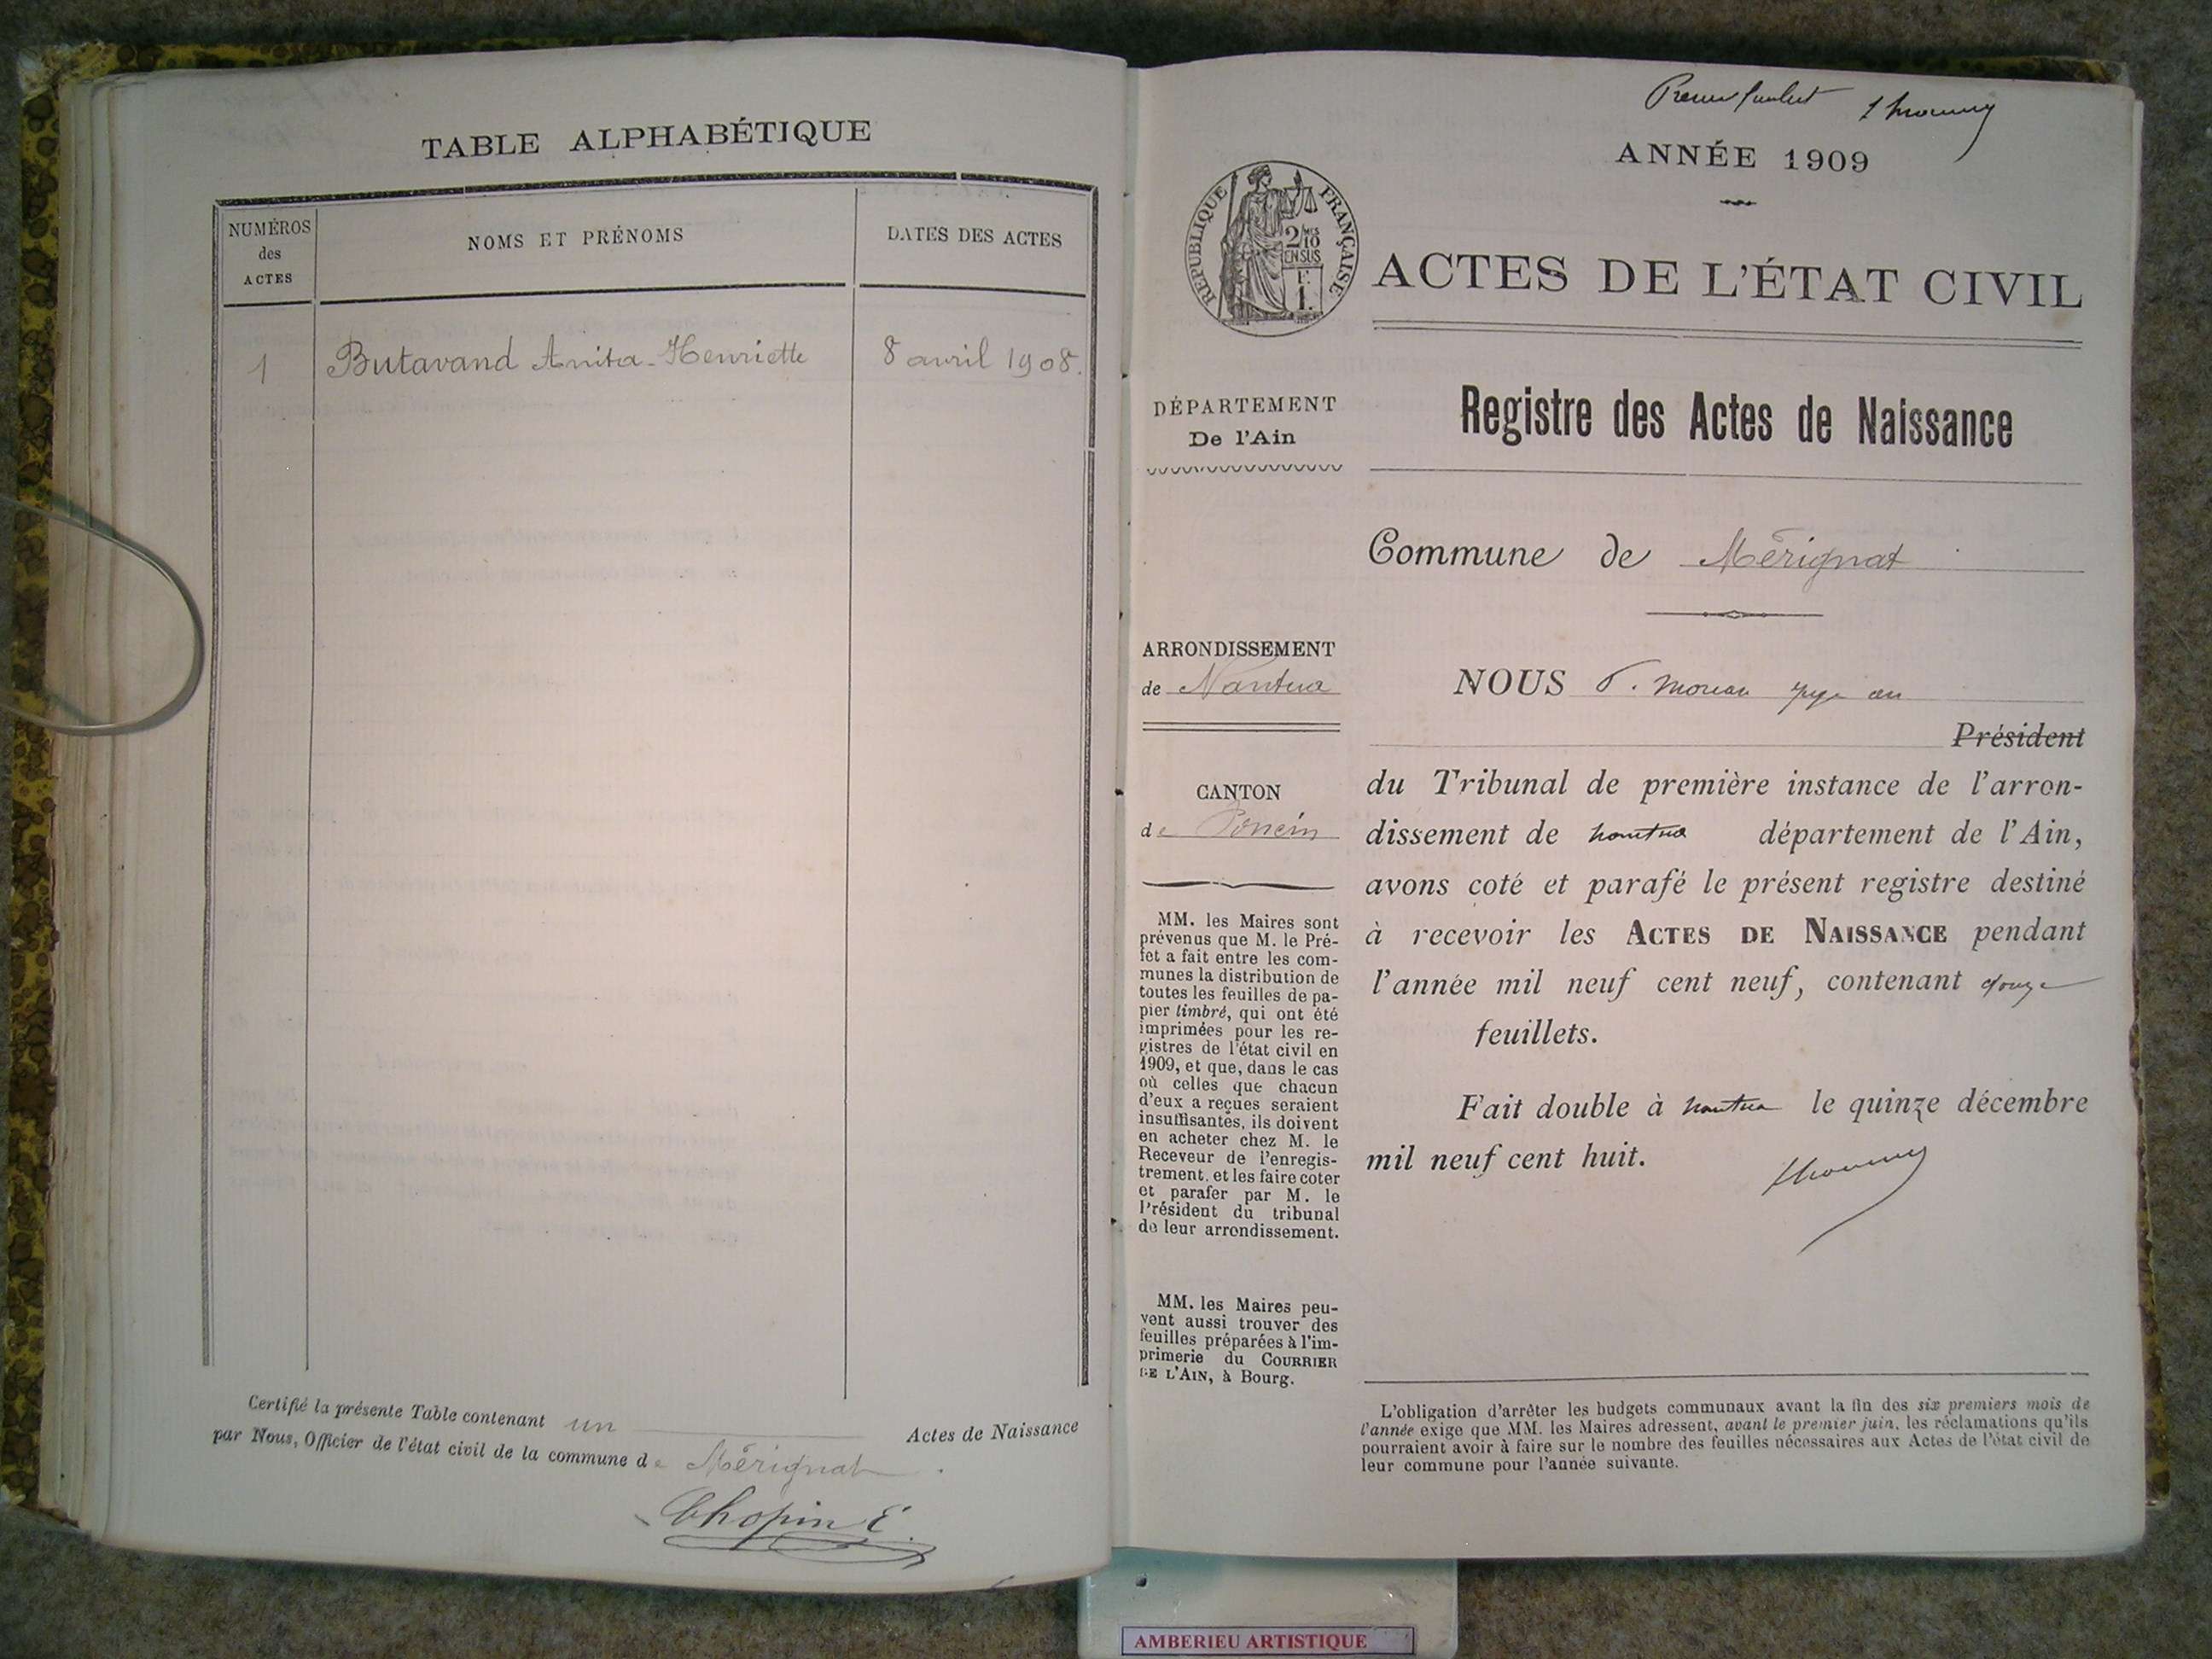 TABLE ALPHABÉTIQUE
NUMÉROS
des
ACTES
NOMS ET PRÉNOMS
DATES DES ACTES
1
Butavand Anita-Henriette
8 avril 1908.
Certifié la présente Table contenant un
Actes de Naissance
par Nous, Officier de l'état civil de la commune de Mérignat
Chopin E.
Premier feuillet
ANNÉE 1909
RÉPUBLIQUE FRANÇAISE
2/10 MES
EN SUS
F.
1.
ACTES DE L'ÉTAT CIVIL
Registre des Actes de Naissance
DÉPARTEMENT
De l'Ain
Commune de Mérignat
ARRONDISSEMENT
de Nantua
CANTON
de Poncin
MM. les Maires sont
prévenus que M. le Pré-
fet a fait entre les com-
munes la distribution de
toutes les feuilles de pa-
pier timbré, qui ont été
imprimées pour les re-
gistres de l'état civil en
1909, et que, dans le cas
où celles que chacun
d'eux a reçues seraient
insuffisantes, ils doivent
en acheter chez M. le
Receveur de l'enregis-
trement, et les faire coter
et parafer par M. le
Président du tribunal
de leur arrondissement.
MM. les Maires peu-
vent aussi trouver des
feuilles préparées à l'im-
primerie du COURRIER
DE L'AIN, à Bourg.
NOUS P. Moreau juge au
Président
du Tribunal de première instance de l'arron-
dissement de nantua département de l'Ain,
avons coté et parafé le présent registre destiné
à recevoir les ACTES DE NAISSANCE pendant
l'année mil neuf cent neuf, contenant douze
feuillets.
Fait double à nantua le quinze décembre
mil neuf cent huit.
L'obligation d'arrêter les budgets communaux avant la fin des six premiers mois de
l'année exige que MM. les Maires adressent, avant le premier juin, les réclamations qu'ils
pourraient avoir à faire sur le nombre des feuilles nécessaires aux Actes de l'état civil de
leur commune pour l'année suivante.
AMBERIEU ARTISTIQUE